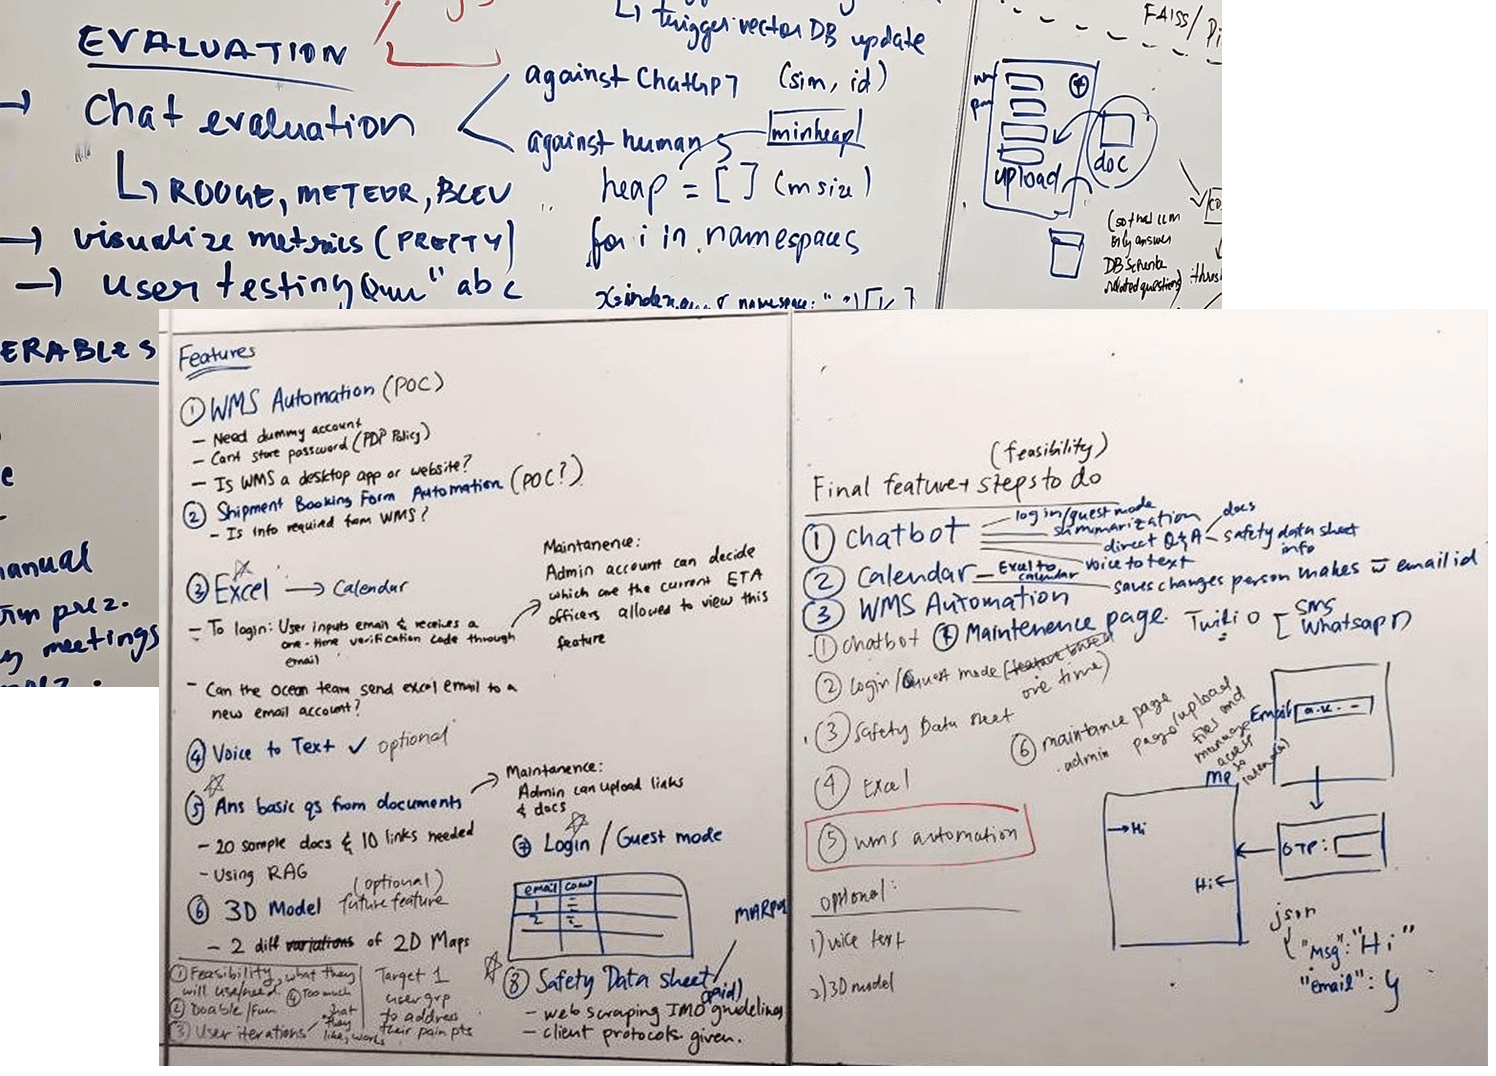 trigger vector DB update
EVALUATION
against ChatGPT (sim, id)
Chat evaluation
against human
minheap
ROUGE, METEOR, BLEU
heap = [ ] (m size)
visualize metrics (PRETTY)
for i in namespaces
user testing "abc
FAISS/
upload
doc
(so that LLM
only answer
DB schema
related questions)
ERABLES
manual
prez.
meetings
Features
① WMS Automation (POC)
- Need dummy account
- Cant store password (PDP Policy)
- Is WMS a desktop app or website?
② Shipment Booking Form Automation (POC?)
- Is info required from WMS?
③ Excel → Calendar
- To login: User inputs email & receives a
one-time verification code through
email
Maintanence:
Admin account can decide
which are the current ETA
officers allowed to view this
feature
- Can the ocean team send excel email to a
new email account?
④ Voice to Text ✓ optional
⑤ Ans basic qs from documents
- 20 sample docs & 10 links needed
- Using RAG
Maintanence:
Admin can upload links
& docs
⑦ Login / Guest mode
email
1
2
(optional)
⑥ 3D Model future feature
- 2 diff variations of 2D Maps
① Feasibility, what they
will use/need
② Doable/Fun
③ User iterations
④ Too much
that
they
like, works
Target 1
user grp
to address
their pain pts
MARPOL
⑧ Safety Data sheet
(paid)
- web scraping IMO guidelines
- client protocols given.
(feasibility)
Final feature + steps to do
① Chatbot
log in/guest mode
summarization
direct Q&A
docs
safety data sheet
info
voice to text
② Calendar
Excel to
calendar
saves changes person makes w email id
③ WMS Automation
① Chatbot
④ Maintenence page.
Twilio [ SMS
Whatsapp
② Login/Guest mode (feature based
one time)
③ Safety Data sheet
④ Excel
⑤ wms automation
⑥ maintance page
admin page/upload
files and
manage
access
Email
OTP:
→ Hi
Hi ←
json
{"msg": "Hi"
"email": y
optional:
1) voice text
2) 3D model